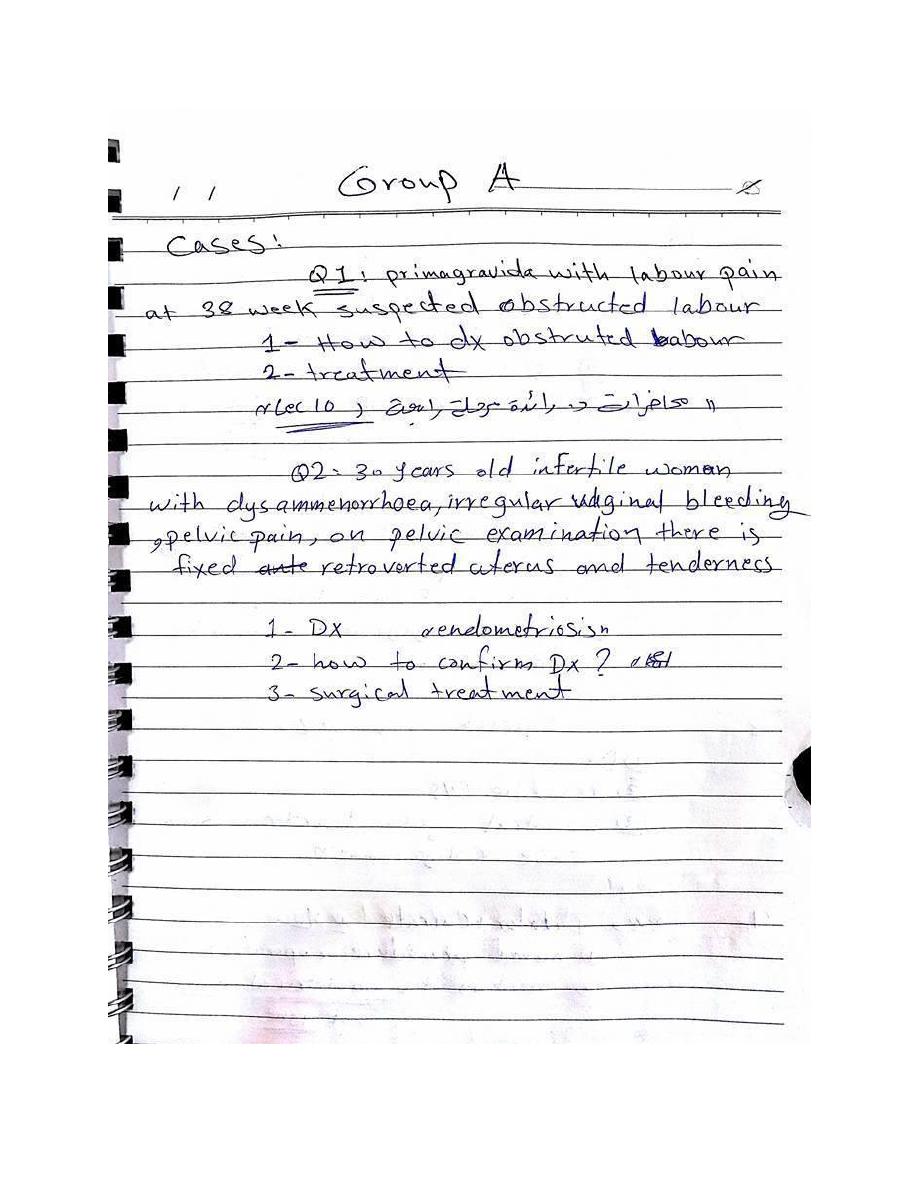 Group A
/ /
Cases:
Q1: primagravida with labour pain
at 38 week suspected obstructed labour
1- How to dx obstruted Labour
2- treatment
" محاضرات د. رائدة مرحلة رابعة , Lec 10 "
Q2: 30 years old infertile woman
with dysammenorrhoea, irregular vaginal bleeding
, pelvic pain, on pelvic examination there is
fixed ante retroverted uterus and tenderness
1- DX "endometriosis"
2- how to confirm Dx?
3- surgical treatment